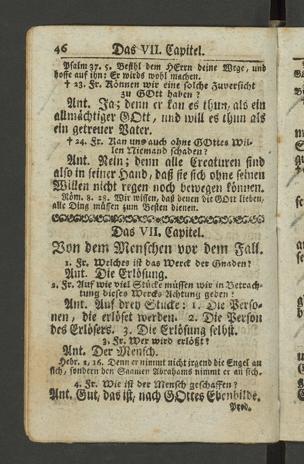 46 Das VII. Capitel.
Psalm 37. 5. Befihl dem HErrn deine Wege, und
hoffe auf ihn: Er wirds wohl machen.
† 23. Fr. Können wir eine solche Zuversicht
zu GOtt haben?
Ant. Ja; denn er kan es thun, als ein
allmächtiger GOtt, und will es thun als
ein getreuer Vater.
† 24. Fr. Kan uns auch ohne GOttes Wil-
len Niemand schaden?
Ant. Nein; denn alle Creaturen sind
also in seiner Hand, daß sie sich ohne seinen
Willen nicht regen noch bewegen können.
Röm. 8. 28. Wir wissen, daß denen die GOtt lieben,
alle Ding müssen zum Besten dienen.
Das VII. Capitel.
Von dem Menschen vor dem Fall.
1. Fr. Welches ist das Werck der Gnaden?
Ant. Die Erlösung.
2. Fr. Auff wie viel Stücke müssen wir in Betrach-
tung dieses Wercks Achtung geben?
Ant. Auf drey Stücke: 1. Die Perso-
nen, die erlöset werden. 2. Die Person
des Erlösers. 3. Die Erlösung selbst.
3. Fr. Wer wird erlößt?
Ant. Der Mensch.
Hebr. 2, 16. Denn er nimmt nicht irgend die Engel an
sich, sondern den Saamen Abrahams nimmt er an sich.
4. Fr. Wie ist der Mensch geschaffen?
Ant. Gut, das ist, nach GOttes Ebenbilde.